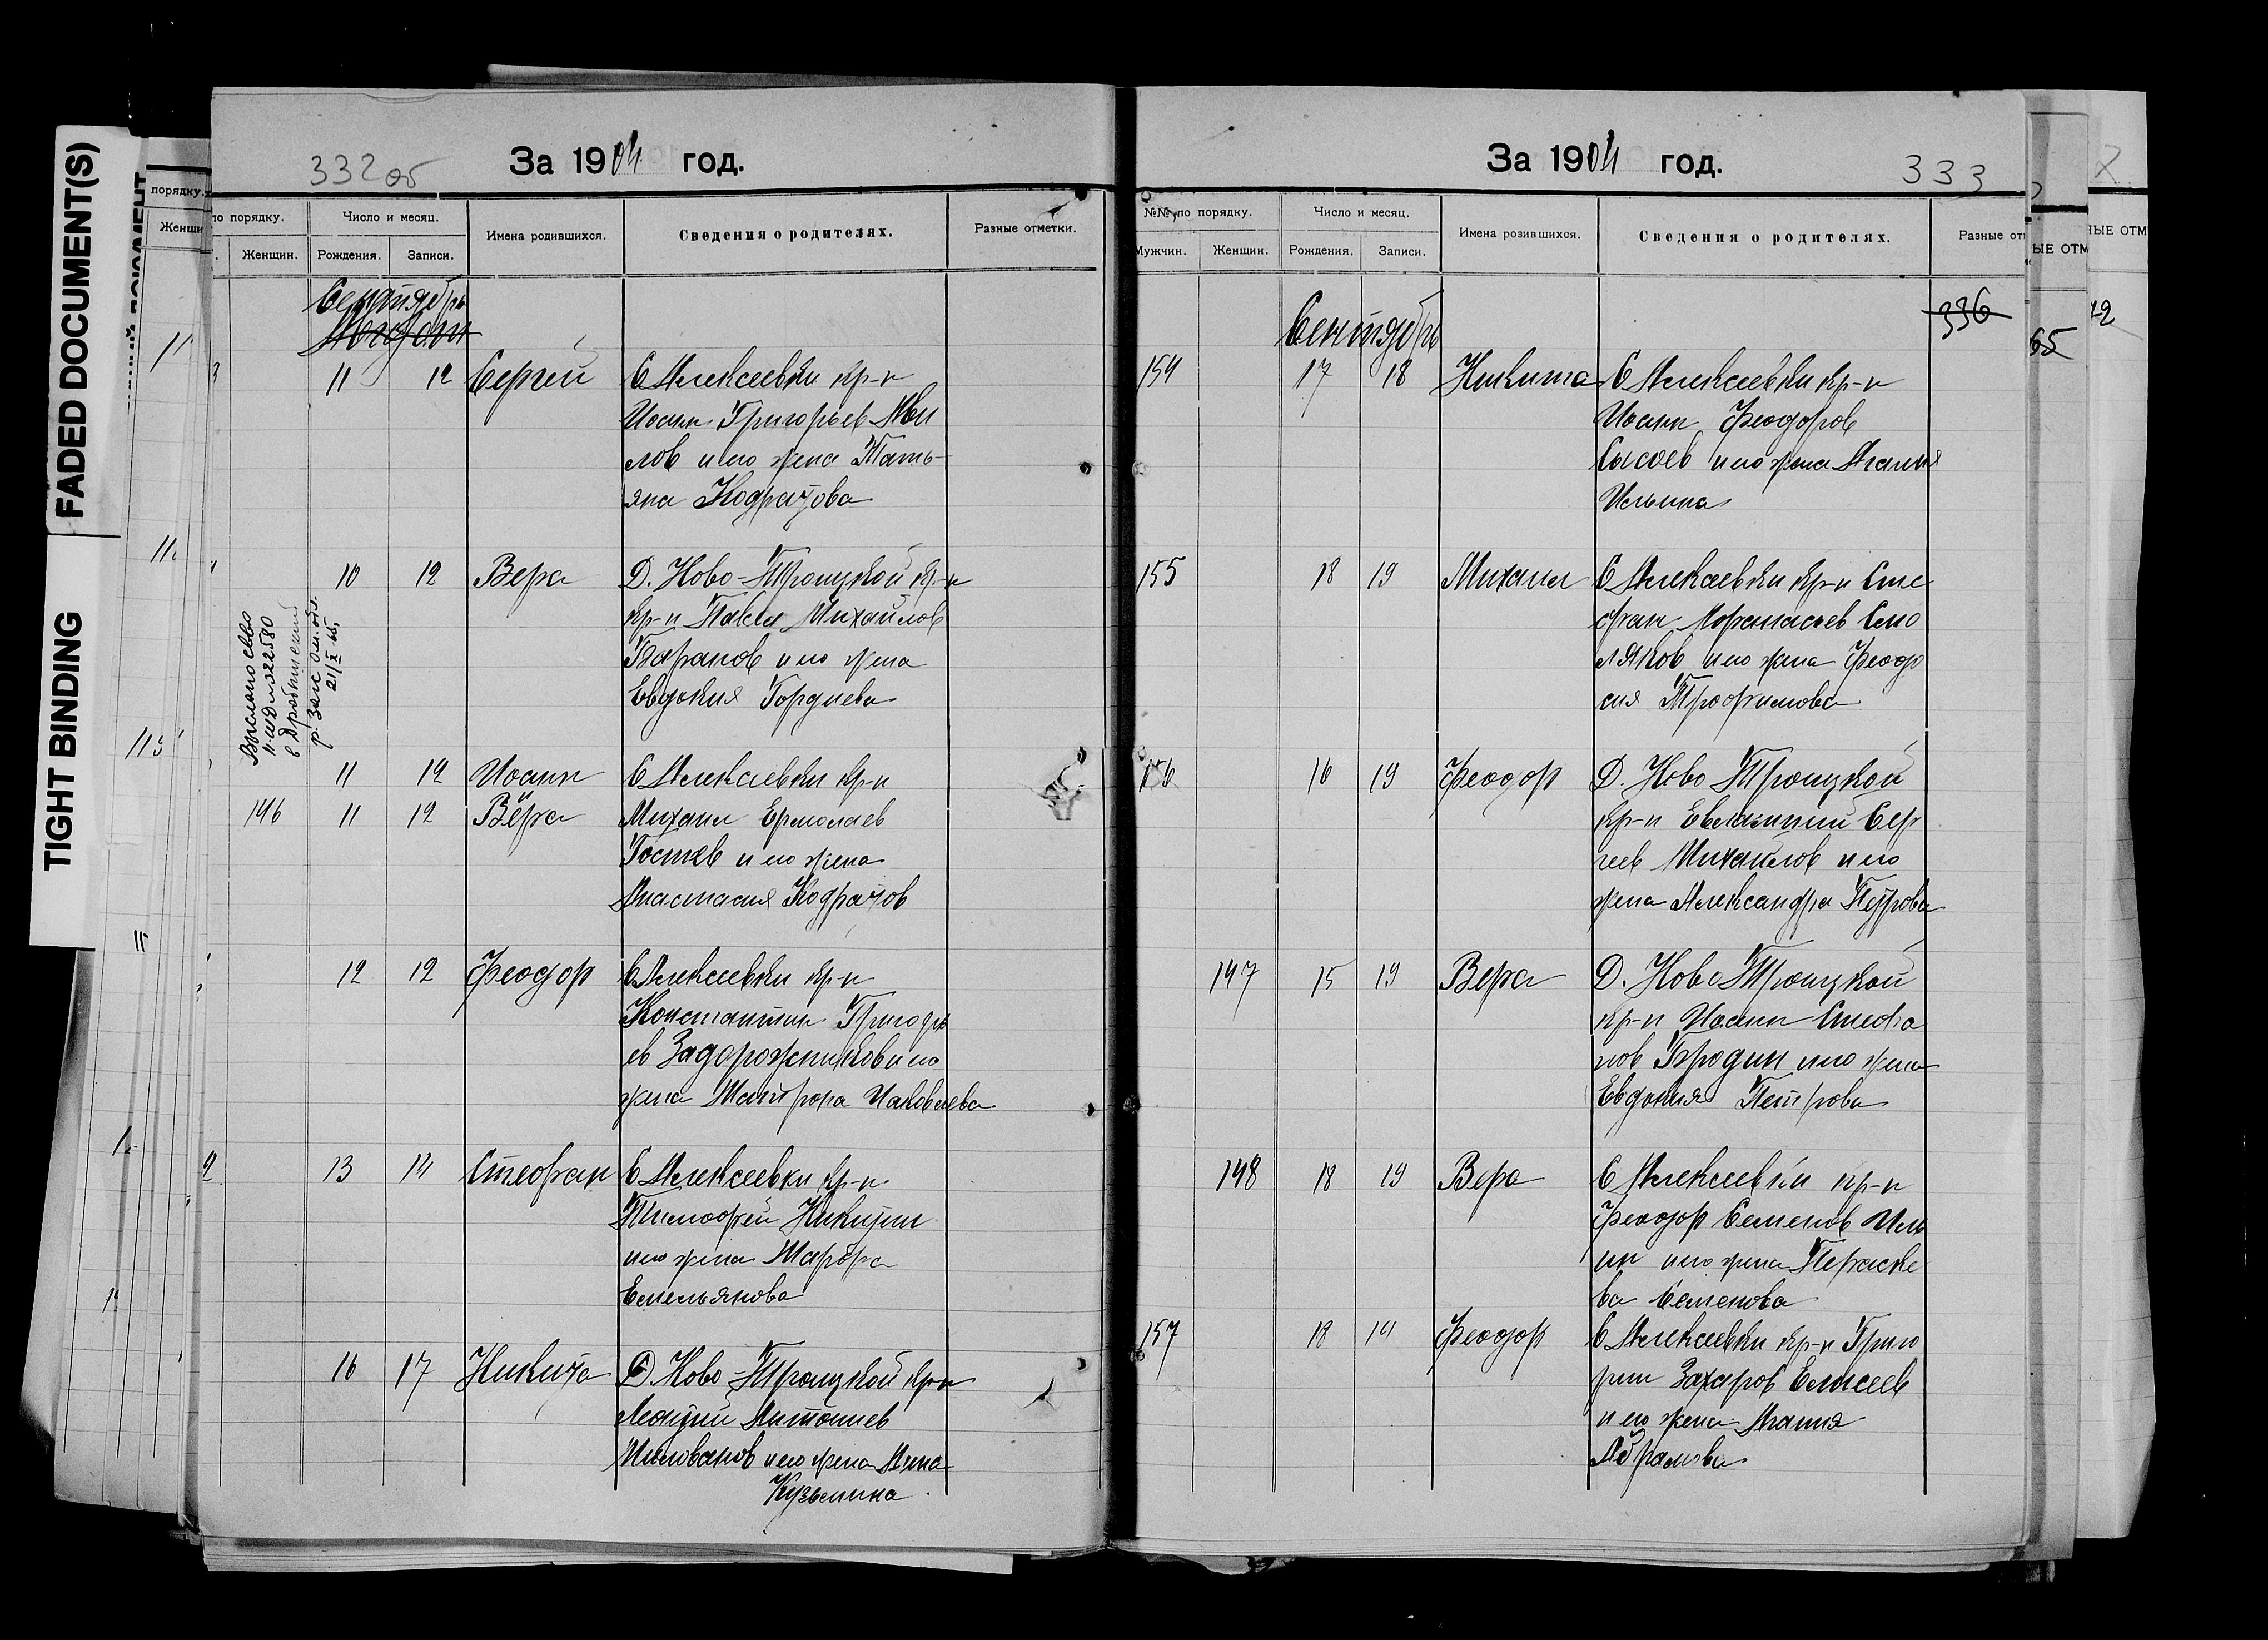 FADED DOCUMENT(S)
TIGHT BINDING
332 об
За 1904 год.
по порядку.
Число и месяц.
Имена родившихся.
Сведения о родителях.
Разные отметки.
Женщин.
Рождения.
Записи.
Сентябрь
11 12 Сергей С Алексеевки кр-н
Иоанн Григорьев Ави
лов и его жена Тать-
яна Кодратова
10 12 Вера Д. Ново-Троицкой кр-н
кр-н Павел Михайлов
Баранов и его жена
Евдокия Гордиева
Выслано св-во
21/X 65.
11 12 Иоанн С Алексеевки кр-н
146 11 12 Вера Михаил Ермолаев
Гостев и его жена
Анастасия Кодратов
12 12 Феодор С Алексеевки кр-н
Константин Григорь
ев Задорожников и его
жена Матрона Иаковлева
13 14 Стефан С Алексеевки кр-н
Тимофей Никитин
и его жена Марфа
Емельянова
16 17 Никита Д. Ново-Троицкой кр-н
Леонтий Антониев
Милованов и его жена Анна
Кузьмина
За 1904 год.
333
№№ по порядку.
Число и месяц.
Имена розившихся.
Сведения о родителях.
Разные от
Мужчин.
Женщин.
Рождения.
Записи.
336
Сентябрь
154 17 18 Никита С Алексеевки кр-н
Иоанн Феодоров
Сысоев и его жена Агапия
Ильина
155 18 19 Михаил С Алексеевки кр-н Сте
фан Афанасьев Смо
ляков и его жена Феодо
сия Трофимова
156 16 19 Феодор Д. Ново Троицкой
кр-н Евлампий Сер
геев Михайлов и его
жена Александра Петрова
147 15 19 Вера Д. Ново Троицкой
кр-н Иоанн Стефа
нов Бродин и его жена
Евдокия Петрова
148 18 19 Вера С Алексеевки кр-н
Феодор Семенов Иль
ин и его жена Параске
ва Семенова
157 18 19 Феодор С Алексеевки кр-н Григо
рии Захаров Елисеев
и его жена Агапия
Абрамова